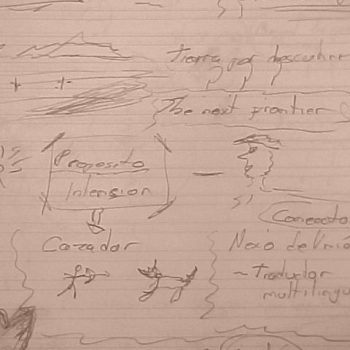 Tierra por descubrir
The next frontier
Proposito
Intension
Conecto
Cazador
Nexo del
~ Traductor
multilingu